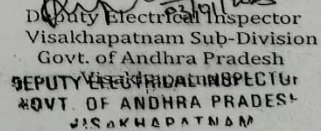 Deputy Electrical Inspector
Visakhapatnam Sub-Division
Govt. of Andhra Pradesh
Visakhapatnam
DEPUTY ELECTRICAL INSPECTOR
GOVT. OF ANDHRA PRADESH
VISAKHAPATNAM